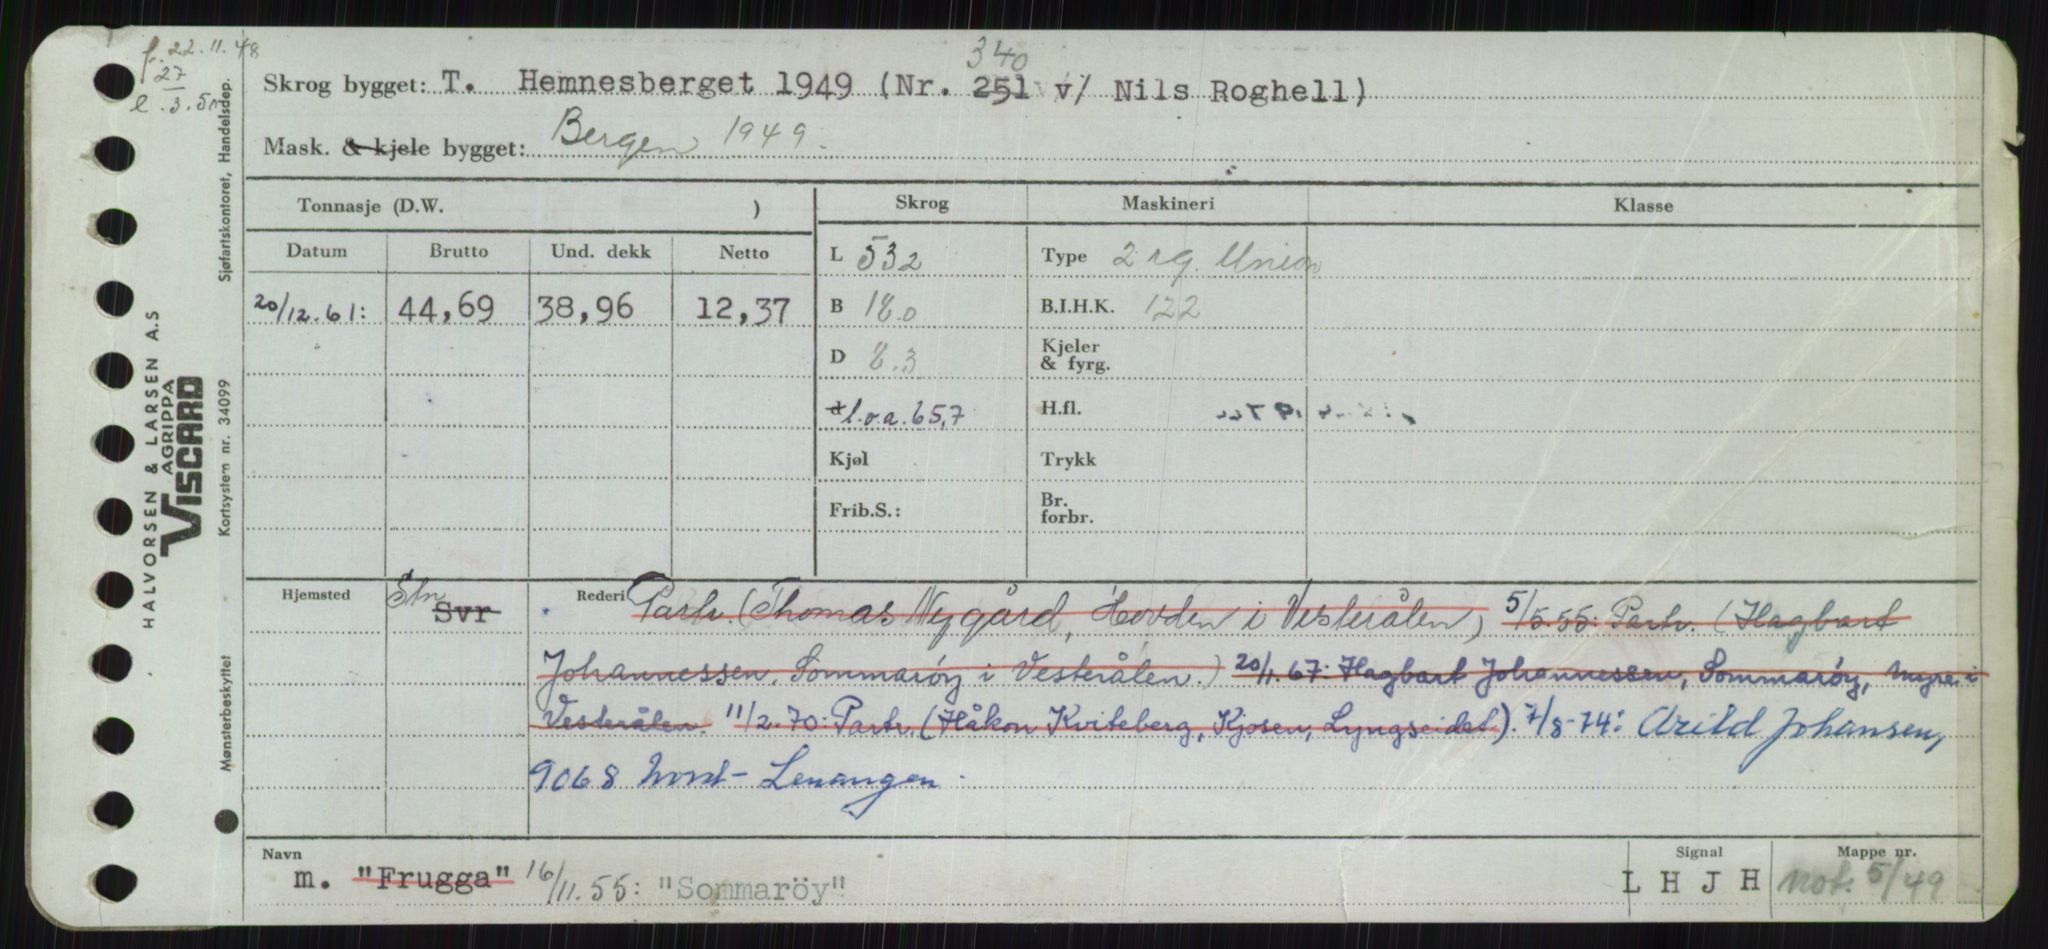 f. 22.11.48
27
e .3.51
HALVORSEN & LARSEN A.S
AGRIPPA
VISCARD
Sjøfartskontoret, Handelsdep.
Kortsystem nr. 34099
Mønsterbeskyttet
340
Skrog bygget: T. Hemnesberget 1949 (Nr. 251 v/ Nils Roghell)
Mask. & kjele bygget: Bergen 1949.
Tonnasje (D.W. ) Skrog Maskineri Klasse
Datum Brutto Und. dekk Netto L 53,2 Type 2 rg. Union
20/12.61: 44,69 38,96 12,37 B 18.0 B.I.H.K. 122
D 8.3 Kjeler & fyrg.
d l.o.a. 65,7 H.fl.
Kjøl Trykk
Frib.S.: Br. forbr.
Hjemsted Stn Svr Rederi Partr. (Thomas Nygård, Hovden i Vesterålen) 5/5.55: Partr. (Hagbart
Johannessen, Sommarøy i Vesterålen.) 20/1.67: Hagbart Johannessen, Sommarøy, Myre i
Vesterålen. 11/2-70: Partr. (Håkon Kviteberg, Kjosen, Lyngseidet). 7/8-74: Arild Johansen,
9068 Nord-Lenangen.
Navn Signal Mappe nr.
m. "Frugga" 16/11.55: "Sommaröy" L H J H not. 5/49